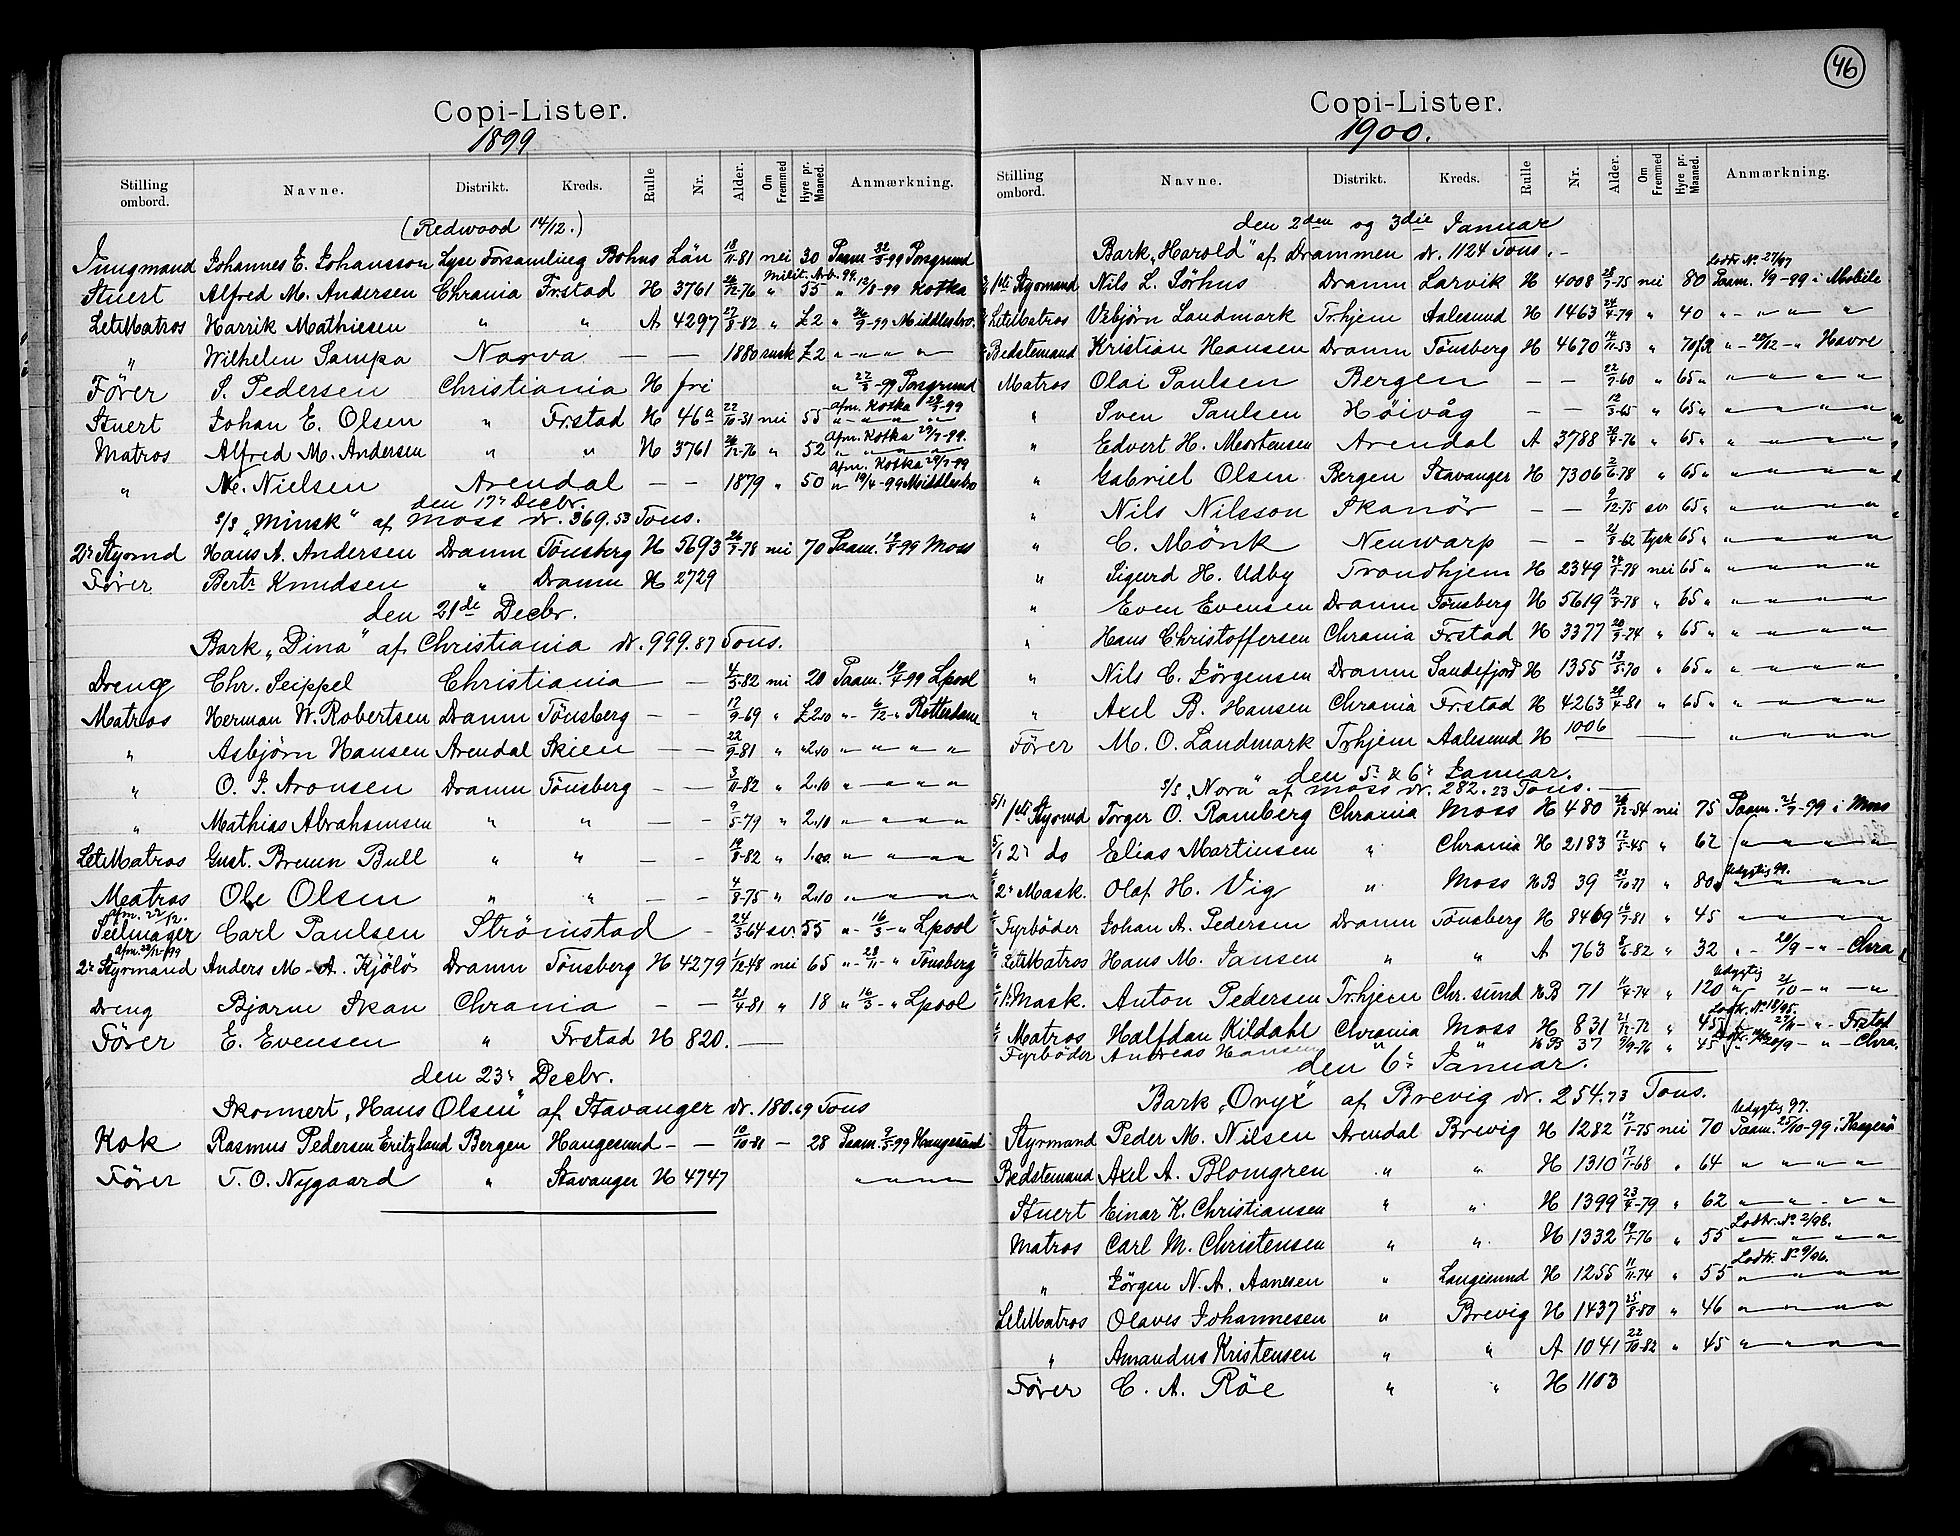 46
Copi-Lister.
1899
Stilling ombord. Navne. Distrikt. Kreds. Rulle Nr. Alder. Om Fremmed Hyre pr. Maaned. Anmærkning.
(Redwood 14/12.)
Jungmand Johannes E. Johansson Lyse Forsamling Bohus Län 18/11-81 nei 30 Paam. Porsgrund
Milit. Arb. 99.
Stuert Alfred M. Andersen Chrania Frstad H 3761 26/12-76 " 55 " 12/8-99 Kotka
LetMatros Harrik Mathiesen " " A 4297 27/9-82 " £2 " 26/9-99 Middlesbro.
" Wilhelm Sampa Narva — — 1880 russk £2 " — " — " — "
Förer S. Pedersen Christiania H fri " 27/3-99 Porsgrund
Afm. Kotka 29/9-99
Stuert Johan E. Olsen " Frstad H 46a 22/10-31 nei 55 " — " — " — "
Afm. Kotka 29/7-99.
Matros Alfred M. Andersen " " H 3761 26/12-76 " 52 " — " — " — "
Afm. Kotka 29/7-99
" Ne. Nielsen Arendal — — 1879 " 50 " 19/4-99 Middlesbro
den 17r Decbr.
S/S „Minsk“ af Moss dr. 369.53 Tons.
2r Styrmd Hans A. Andersen Dramm Tönsberg H 5693 26/3-78 nei 70 Paam. 19/8-99 Moss
Förer Bertr Knudsen " Dramm H 2729
den 21de Decbr.
Bark „Dina“ af Christiania dr. 999.87 Tons.
Dreng Chr. Seippel Christiania — — 4/3-82 nei 20 Paam. 19/4-99 Lpool
Matros Herman W. Robertsen Dramm Tönsberg — — 17/9-69 " £2.10 " - 6/12 - " Rotterdam
" Asbjörn Hansen Arendal Skien — — 22/9-81 " " 2.10 " — " — " — "
" O. J. Aronsen Dramm Tönsberg — — 3/11-82 " 2.10 " — " — " — "
" Mathias Abrahamsen " " — — 9/5-79 " 2.10 " — " — " — "
LetMatros Gust. Bruun Bull " " — — 19/8-82 " 1.00 " — " — " — "
Matros Ole Olsen " " — — 4/8-75 " 2.10 " — " — " — "
Afm. 22/12.
Seilmager Carl Paulsen Strömstad — 24/3-64 sv. 55 " - 16/3 - " Lpool
Afm. 22/12-99
2r Styrmand Anders M-A. Kjölö Dramm Tönsberg H 4279 1/12-48 nei 65 " - 28/11 - " Tönsberg
Dreng Bjarne Skan Chrania — — 21/4-81 " 18 " 16/3 - " Lpool
Förer E. Evensen " Frstad H 820. —
den 23r Decbr.
Skonnert „Hans Olsen“ af Stavanger dr. 180.69 Tons
Kok Rasmus Pedersen Eritzland Bergen Haugesund — — 10/10-81 — 28 Paam. 9/5-99 Haugesund
Förer T. O. Nygaard " Stavanger H 4747 " — " — " — "
Copi-Lister.
1900.
Stilling ombord. Navne. Distrikt. Kreds. Rulle Nr. Alder. Om Fremmed Hyre pr. Maaned. Anmærkning.
den 2den og 3die Januar
Bark „Harold“ af Drammen dr. 1124 Tons. —
Lodtr. No 27/97
1ste Styrmand Nils L. Sörhus Dramm Larvik H 4008 28/9-75 nei 80 Paam. 1/9-99 i Mobile
LetMatros Vebjörn Landmark Tr.hjem Aalesund H 1463 24/9-79 " 40 " — " — " — "
Bedstemand Kristian Hansen Dramm Tönsberg H 4670 14/11-53 " 70fR " - 20/12 - " Havre
Matros Olai Paulsen Bergen — — 22/9-60 " 65 " " — " — " — "
" Sven Paulsen Höivåg — — 12/3-65 " 65 " " — " — " — "
" Edvert H. Mortensen Arendal A 3788 20/9-76 " 65 " " — " — " — "
" Gabriel Olsen Bergen Stavanger H 7306 2/6-78 " 65 " " — " — " — "
" Nils Nilsson Skanör — — 9/12-75 sv 65 " " — " — " — "
" C. Mönk Neuwarp — — 21/8-62 tysk 65 " " — " — " — "
" Sigurd H. Udby Trondhjem H 2349 24/1-78 nei 65 " " — " — " — "
" Even Evensen Dramm Tönsberg H 5619 12/3-78 " 65 " " — " — " — "
" Hans Christoffersen Chrania Frstad H 3377 20/9-74 " 65 " " — " — " — "
" Nils C. Jörgensen Dramm Sandefjord H 1355 13/5-70 " 65 " " — " — " — "
" Axel B. Hansen Chrania Frstad H 4263 20/4-81 " 65 " " — " — " — "
Förer M. O. Landmark Tr.hjem Aalesund H 1006 — " — " — " — "
den 5r & 6r Januar.
S/S „Nora“ af Moss dr. 282.23 Tons. —
5/1 1ste Styrmd Torger O. Ramberg Chrania Moss H 480 26/12-54 nei 75 Paam. 21/9-99 i Moss
5/1 2r do Elias Martinsen " Chrania H 2183 12/3-45 " 62 " — " — " — "
Udygtig 99.
2r Mask. Olaf H. Vig " Moss HB 39 23/10-77 " 80 " — " — " — "
Fyrböder Johan A. Pedersen Dramm Tönsberg H 8469 16/7-81 " 45 " — " — " — "
LetMatros Hans M. Jansen " " A 763 8/6-82 " 32 " - 20/9 - " - Chra
Udygtig
1r Mask. Anton Pedersen Tr.hjem Chr.sund HB 71 11/4-74 " 120 " 21/10 - " — "
Lodtr. No 18/95.
Matros Halfdan Kildahl Chrania Moss H 831 21/12-72 " 45 " 27/9 - " - Frstad
Fyrböder Andreas Hansen " " HB 37 9/9-76 " 45 20/9 - " - Chra.
den 6r Januar.
Bark „Oryx“ af Brevig dr. 254.73 Tons.
Udygtig 97.
Styrmand Peder M. Nilsen Arendal Brevig H 1282 17/1-75 nei 70 Paam. 25/10-99 i Kragerö
Bedstemand Axel A. Blomgren " " H 1310 17/1-68 " 64 " — " — " — "
Stuert Einar K. Christiansen " " H 1399 23/4-79 " 62 " — " — " — "
Lodtr. No 2/98.
Matros Carl M. Christensen " " H 1332 19/7-76 " 55 " — " — " — "
Lodtr. No 9/96.
" Jörgen N. A. Aanesen " Langesund H 1255 11/11-74 " 55 " — " — " — "
LetMatros Olaves Johannesen " Brevig H 1437 25/8-80 " 46 " — " — " — "
" Amandus Kristensen " " A 1041 22/10-82 " 45 " — " — " — "
Förer C. A. Röe " " H 1103